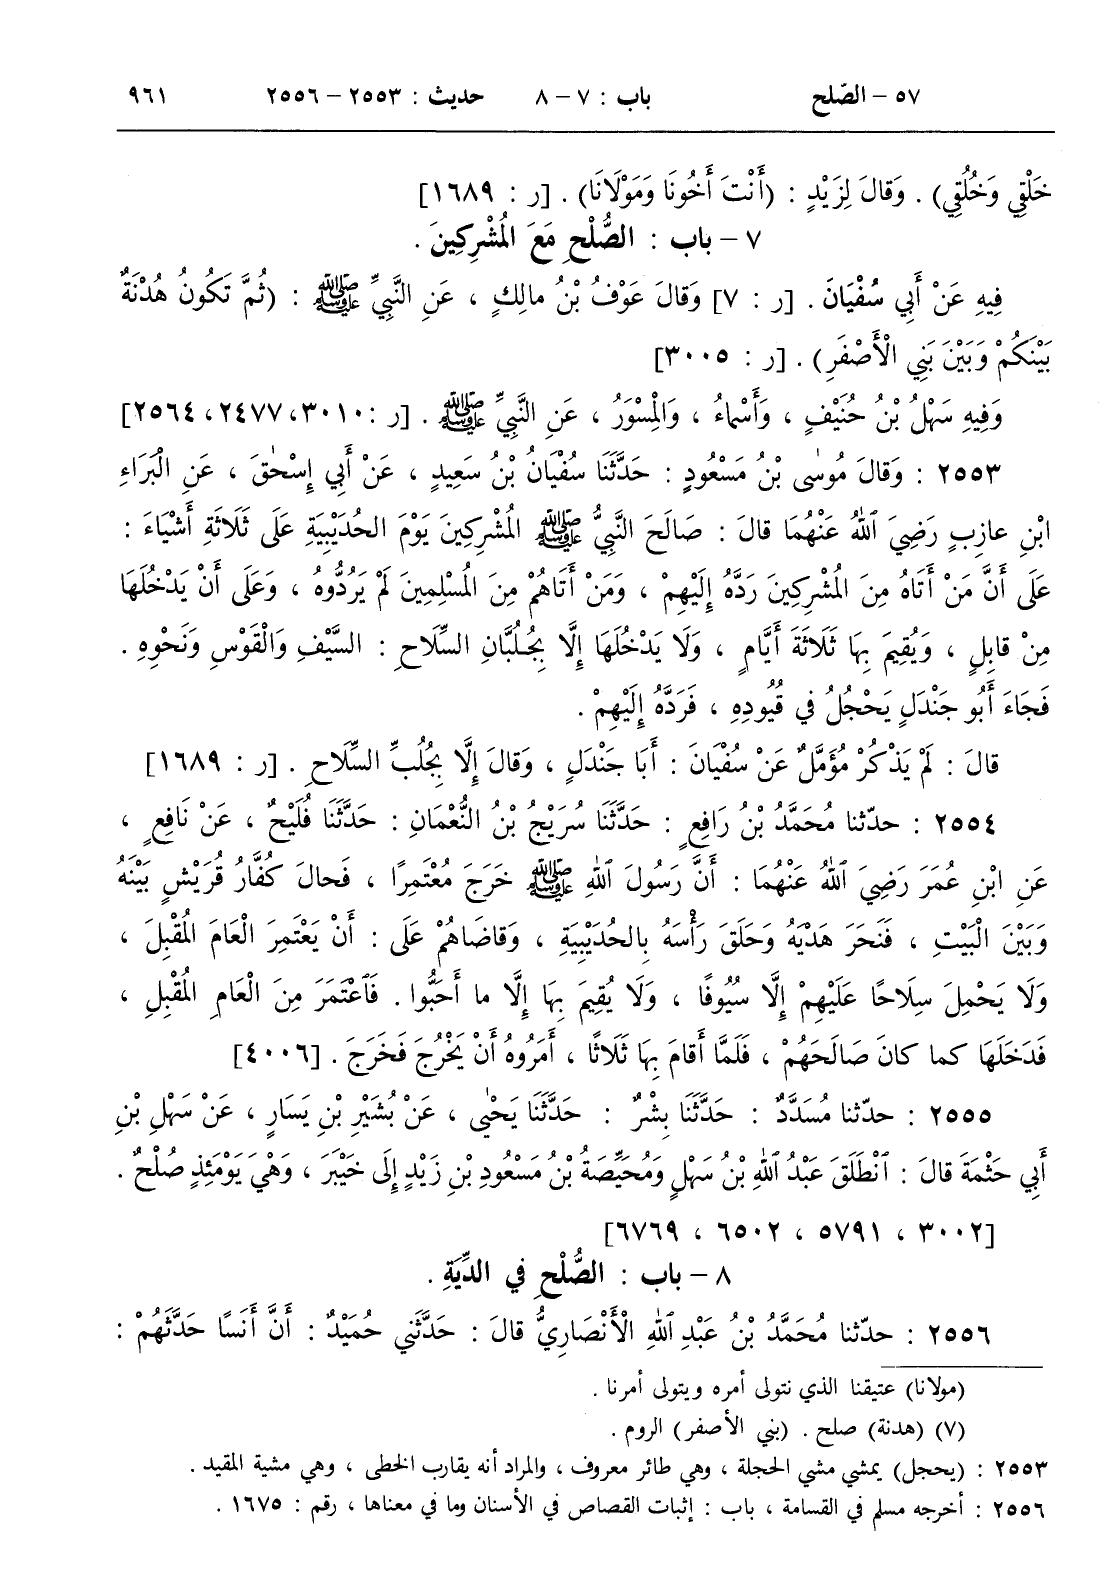 ٥٧ – الصّلح باب : ٧ – ٨ حديث : ٢٥٥٣ – ٢٥٥٦ ٩٦١
خَلْقِي وَخُلُقِي) . وَقالَ لِزَيْدٍ : (أَنْتَ أَخُونَا وَمَوْلَانَا) . [ر : ١٦٨٩]
٧ – باب : الصُّلْحِ مَعَ المُشْرِكِينَ .
فِيهِ عَنْ أَبِي سُفْيَانَ . [ر : ٧] وَقالَ عَوْفُ بْنُ مالِكٍ ، عَنِ النَّبِيِّ ﷺ : (ثُمَّ تَكُونُ هُدْنَةٌ
بَيْنَكُمْ وَبَيْنَ بَنِي الْأَصْفَرِ) . [ر : ٣٠٠٥]
وَفِيهِ سَهْلُ بْنُ حُنَيْفٍ ، وَأَسْماءُ ، وَالْمِسْوَرُ ، عَنِ النَّبِيِّ ﷺ . [ر : ٣٠١٠، ٢٤٧٧، ٢٥٦٤]
٢٥٥٣ : وَقالَ مُوسٰى بْنُ مَسْعُودٍ : حَدَّثَنَا سُفْيَانُ بْنُ سَعِيدٍ ، عَنْ أَبِي إِسْحٰقَ ، عَنِ الْبَرَاءِ
ابْنِ عازِبٍ رَضِيَ ٱللهُ عَنْهُمَا قالَ : صَالَحَ النَّبِيُّ ﷺ المُشْرِكِينَ يَوْمَ الحُدَيْبِيَةِ عَلَى ثَلَاثَةِ أَشْيَاءَ :
عَلَى أَنَّ مَنْ أَتَاهُ مِنَ الْمُشْرِكِينَ رَدَّهُ إِلَيْهِمْ ، وَمَنْ أَتَاهُمْ مِنَ المُسْلِمِينَ لَمْ يَرُدُّوهُ ، وَعَلَى أَنْ يَدْخُلَهَا
مِنْ قابِلٍ ، وَيُقِيمَ بِهَا ثَلَاثَةَ أَيَّامٍ ، وَلَا يَدْخُلَهَا إِلَّا بِجُلُبَّانِ السِّلَاحِ : السَّيْفِ وَالْقَوْسِ وَنَحْوِهِ .
فَجَاءَ أَبُو جَنْدَلٍ يَحْجُلُ فِي قُيُودِهِ ، فَرَدَّهُ إِلَيْهِمْ .
قالَ : لَمْ يَذْكُرْ مُؤَمَّلٌ عَنْ سُفْيَانَ : أَبَا جَنْدَلٍ ، وَقالَ إِلَّا بِجُلُبِّ السِّلَاحِ . [ر : ١٦٨٩]
٢٥٥٤ : حدّثنا مُحَمَّدُ بْنُ رَافِعٍ : حَدَّثَنَا سُرَيْجُ بْنُ النُّعْمَانِ : حَدَّثَنَا فُلَيْحٌ ، عَنْ نَافِعٍ ،
عَنِ ابْنِ عُمَرَ رَضِيَ ٱللهُ عَنْهُمَا : أَنَّ رَسُولَ ٱللهِ ﷺ خَرَجَ مُعْتَمِرًا ، فَحالَ كُفَّارُ قُرَيْشٍ بَيْنَهُ
وَبَيْنَ الْبَيْتِ ، فَنَحَرَ هَدْيَهُ وَحَلَقَ رَأْسَهُ بِالحُدَيْبِيَةِ ، وَقاضَاهُمْ عَلَى : أَنْ يَعْتَمِرَ الْعَامَ المُقْبِلَ ،
وَلَا يَحْمِلَ سِلَاحًا عَلَيْهِمْ إِلَّا سُيُوفًا ، وَلَا يُقِيمَ بِهَا إِلَّا ما أَحَبُّوا . فَٱعْتَمَرَ مِنَ الْعَامِ المُقْبِلِ ،
فَدَخَلَهَا كما كانَ صَالَحَهُمْ ، فَلَمَّا أَقامَ بِهَا ثَلَاثًا ، أَمَرُوهُ أَنْ يَخْرُجَ فَخَرَجَ . [٤٠٠٦]
٢٥٥٥ : حدّثنا مُسَدَّدٌ : حَدَّثَنَا بِشْرٌ : حَدَّثَنَا يَحْيٰى ، عَنْ بُشَيْرِ بْنِ يَسَارٍ ، عَنْ سَهْلِ بْنِ
أَبِي حَثْمَةَ قالَ : ٱنْطَلَقَ عَبْدُ ٱللهِ بْنُ سَهْلٍ وَمُحَيِّصَةُ بْنُ مَسْعُودِ بْنِ زَيْدٍ إِلَى خَيْبَرَ ، وَهْيَ يَوْمَئِذٍ صُلْحٌ .
[٣٠٠٢ ، ٥٧٩١ ، ٦٥٠٢ ، ٦٧٦٩]
٨ – باب : الصُّلْحِ فِي الدِّيَةِ .
٢٥٥٦ : حدّثنا مُحَمَّدُ بْنُ عَبْدِ ٱللهِ الْأَنْصَارِيُّ قالَ : حَدَّثَنِي حُمَيْدٌ : أَنَّ أَنَسًا حَدَّثَهُمْ :
(مولانا) عتيقنا الذي نتولى أمره ويتولى أمرنا .
(٧) (هدنة) صلح . (بني الأصفر) الروم .
٢٥٥٣ : (يحجل) يمشي مشي الحجلة ، وهي طائر معروف ، والمراد أنه يقارب الخطى ، وهي مشية المقيد .
٢٥٥٦ : أخرجه مسلم في القسامة ، باب : إثبات القصاص في الأسنان وما في معناها ، رقم : ١٦٧٥ .